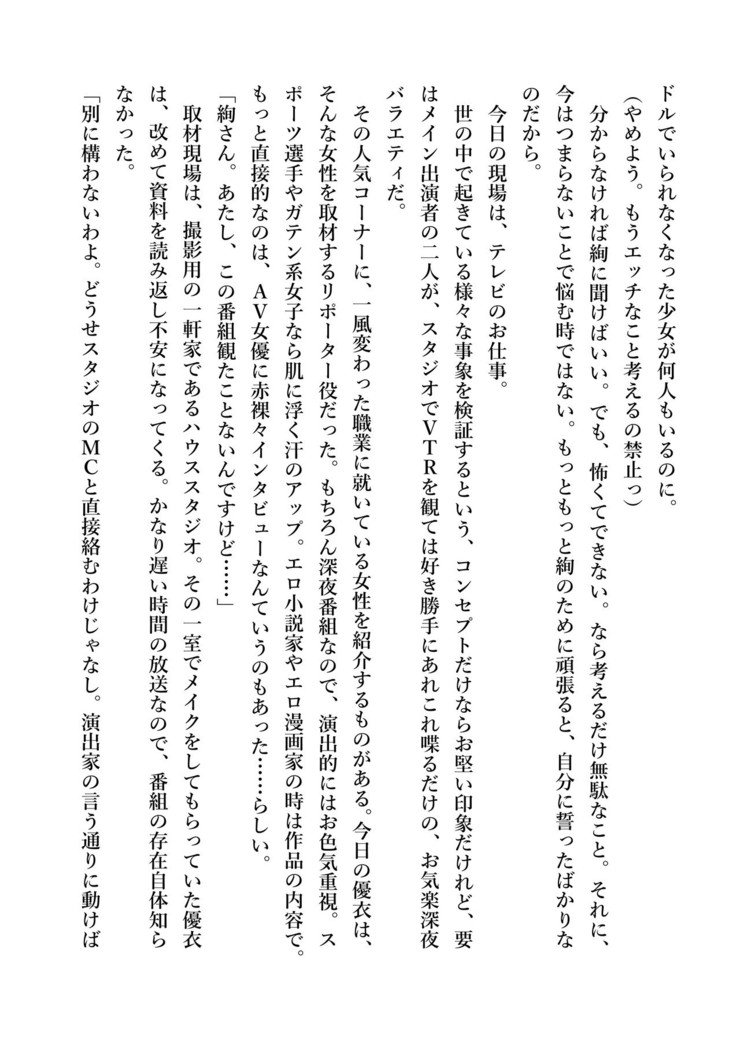 ドルでいられなくなった少女が何人もいるのに。
(やめよう。もうエッチなこと考えるの禁止っ)
分からなければ絢に聞けばいい。でも、怖くてできない。なら考えるだけ無駄なこと。それに、
今はつまらないことで悩む時ではない。もっともっと絢のために頑張ると、自分に誓ったばかりな
のだから。
今日の現場は、テレビのお仕事。
世の中で起きている様々な事象を検証するという、コンセプトだけならお堅い印象だけれど、要
はメイン出演者の二人が、スタジオでVTRを観ては好き勝手にあれこれ喋るだけの、お気楽深夜
バラエティだ。
その人気コーナーに、一風変わった職業に就いている女性を紹介するものがある。今日の優衣は、
そんな女性を取材するリポーター役だった。もちろん深夜番組なので、演出的にはお色気重視。ス
ポーツ選手やガテン系女子なら肌に浮く汗のアップ。エロ小説家やエロ漫画家の時は作品の内容で。
もっと直接的なのは、AV女優に赤裸々インタビューなんていうのもあった……らしい。
「絢さん。あたし、この番組観たことないんですけど……」
取材現場は、撮影用の一軒家であるハウススタジオ。その一室でメイクをしてもらっていた優衣
は、改めて資料を読み返し不安になってくる。かなり遅い時間の放送なので、番組の存在自体知ら
なかった。
「別に構わないわよ。どうせスタジオのMCと直接絡むわけじゃなし。演出家の言う通りに動けば